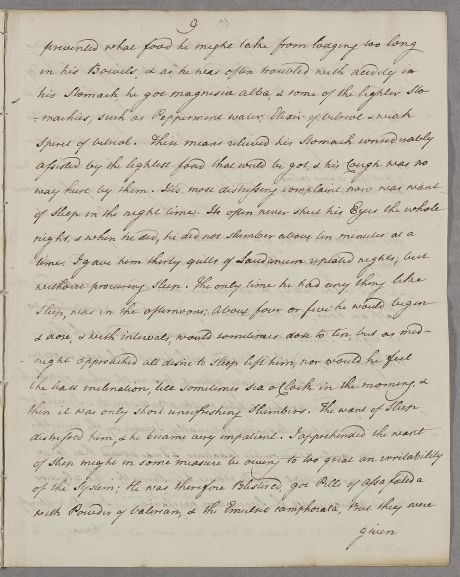 9
prevented what food he might take from lodging too long
in his Bowels, & as he was often troubled with acidity in
his Stomach he got magnesia alba, & some of the lighter Sto-
-machics, such as Peppermint water, Elixir of vitriol & weak
Spirit of vitriol. These means relieved his Stomach considerably
assisted by the lightest food that could be got, & his Cough was no
way hurt by them. His most distressing complaint now was want
of Sleep in the night time. He often never shut his Eyes the whole
night, & when he did, he did not Slumber above ten minutes at a
time. I gave him thirty gutts of Laudanum repeated nights, but
without procuring Sleep. The only time he had any thing like
Sleep, was in the afternoons: about four or five he would begin
& doze, & with intervals, would sometimes dose to ten, but as mid-
-night approached all desire to Sleep left him, nor would he feel
the least inclination till sometimes six o Clock in the morning, &
then it was only short unrefreshing Slumbers. The want of Sleep
distressed him, & he became very impatient. I apprehended the want
of Sleep might in some measure be owing to too great an irritability
of the System: He was therefore Blistered, got Pills of Assafœtida
with Powder of valerian, & the Emulsio camphorata, But they were
given